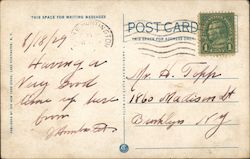 THIS SPACE FOR WRITING MESSAGES
POST CARD
THIS SPACE FOR ADDRESS ONLY
1
1
8/18/29
Having a
Very Good
time up here
from
Mr. H. Topp
1860 Madison St
Brooklyn N.Y